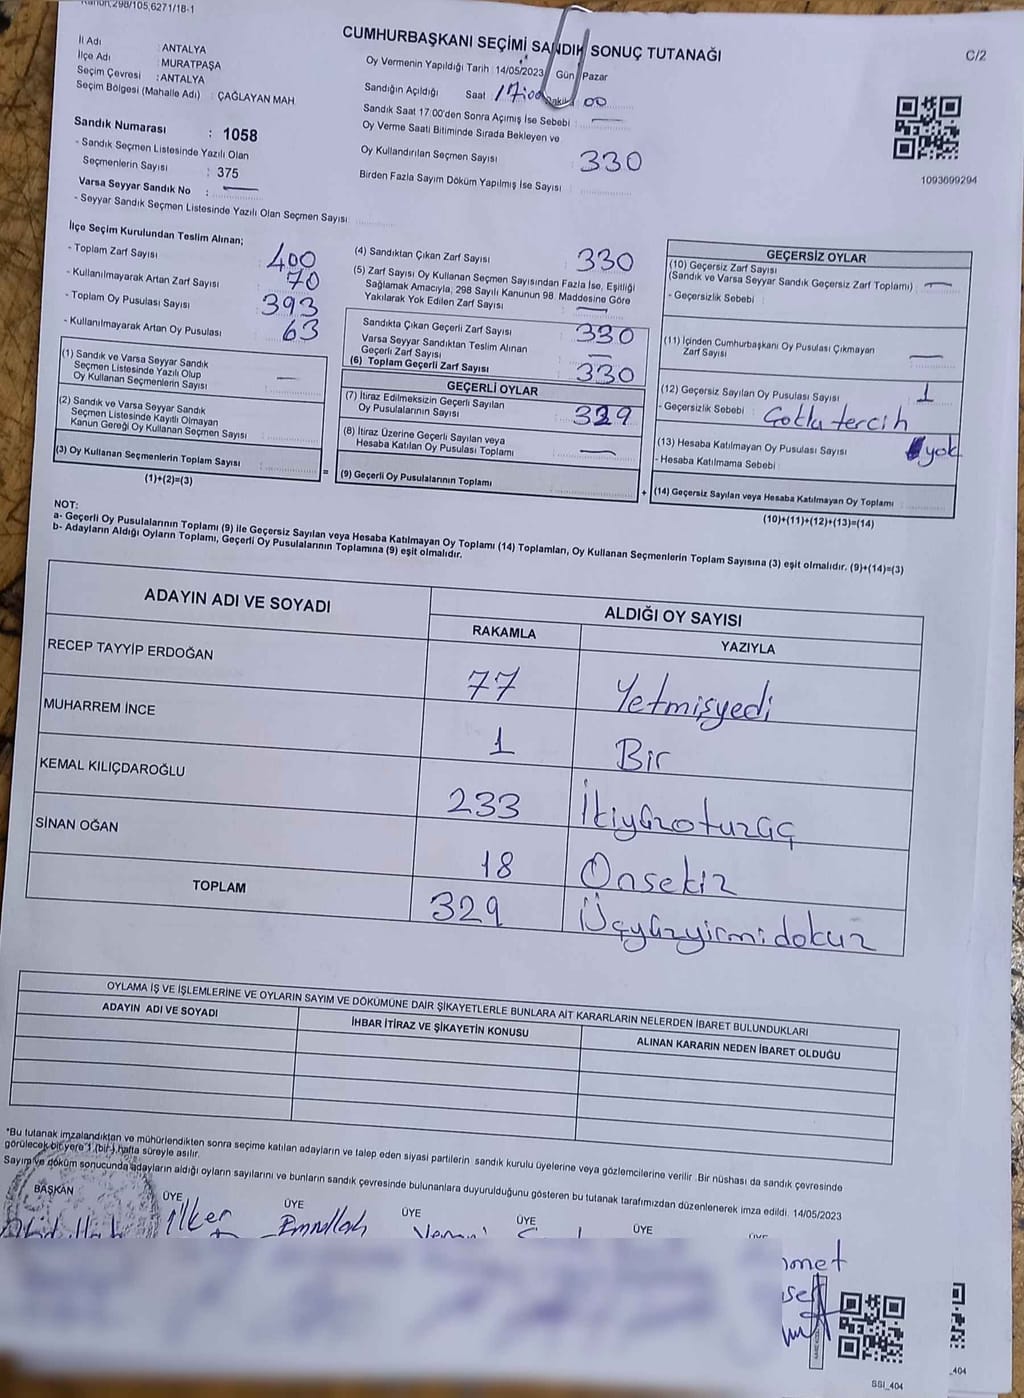 Kanun,298/105,6271/18-1
CUMHURBAŞKANI SEÇİMİ SANDIK SONUÇ TUTANAĞI
C/2
İl Adı : ANTALYA
İlçe Adı : MURATPAŞA
Seçim Çevresi : ANTALYA
Seçim Bölgesi (Mahalle Adı) : ÇAĞLAYAN MAH
Sandık Numarası : 1058
- Sandık Seçmen Listesinde Yazılı Olan
Seçmenlerin Sayısı : 375
Varsa Seyyar Sandık No :
- Seyyar Sandık Seçmen Listesinde Yazılı Olan Seçmen Sayısı
Oy Vermenin Yapıldığı Tarih : 14/05/2023 Gün : Pazar
Sandığın Açıldığı Saat 17:00 Dakika 00
Sandık Saat 17:00'den Sonra Açımış İse Sebebi :
Oy Verme Saati Bitiminde Sırada Bekleyen ve
Oy Kullandırılan Seçmen Sayısı : 330
Birden Fazla Sayım Döküm Yapılmış İse Sayısı
1093699294
İlçe Seçim Kurulundan Teslim Alınan;
- Toplam Zarf Sayısı 400
- Kullanılmayarak Artan Zarf Sayısı 70
- Toplam Oy Pusulası Sayısı 393
- Kullanılmayarak Artan Oy Pusulası 63
(1) Sandık ve Varsa Seyyar Sandık
Seçmen Listesinde Yazılı Olup
Oy Kullanan Seçmenlerin Sayısı
(2) Sandık ve Varsa Seyyar Sandık
Seçmen Listesinde Kayıtlı Olmayan
Kanun Gereği Oy Kullanan Seçmen Sayısı
(3) Oy Kullanan Seçmenlerin Toplam Sayısı
(1)+(2)=(3)
=
(4) Sandıktan Çıkan Zarf Sayısı 330
(5) Zarf Sayısı Oy Kullanan Seçmen Sayısından Fazla İse, Eşitliği
Sağlamak Amacıyla, 298 Sayılı Kanunun 98. Maddesine Göre
Yakılarak Yok Edilen Zarf Sayısı
Sandıkta Çıkan Geçerli Zarf Sayısı 330
Varsa Seyyar Sandıktan Teslim Alınan
Geçerli Zarf Sayısı
(6) Toplam Geçerli Zarf Sayısı 330
GEÇERLİ OYLAR
(7) İtiraz Edilmeksizin Geçerli Sayılan
Oy Pusulalarının Sayısı 329
(8) İtiraz Üzerine Geçerli Sayılan veya
Hesaba Katılan Oy Pusulası Toplamı
(9) Geçerli Oy Pusulalarının Toplamı
+
GEÇERSİZ OYLAR
(10) Geçersiz Zarf Sayısı
(Sandık ve Varsa Seyyar Sandık Geçersiz Zarf Toplamı)
- Geçersizlik Sebebi
(11) İçinden Cumhurbaşkanı Oy Pusulası Çıkmayan
Zarf Sayısı
(12) Geçersiz Sayılan Oy Pusulası Sayısı 1
- Geçersizlik Sebebi : Çoklu tercih
(13) Hesaba Katılmayan Oy Pusulası Sayısı yok
- Hesaba Katılmama Sebebi
(14) Geçersiz Sayılan veya Hesaba Katılmayan Oy Toplamı
(10)+(11)+(12)+(13)=(14)
NOT:
a- Geçerli Oy Pusulalarının Toplamı (9) ile Geçersiz Sayılan veya Hesaba Katılmayan Oy Toplamı (14) Toplamları, Oy Kullanan Seçmenlerin Toplam Sayısına (3) eşit olmalıdır. (9)+(14)=(3)
b- Adayların Aldığı Oyların Toplamı, Geçerli Oy Pusulalarının Toplamına (9) eşit olmalıdır.
ADAYIN ADI VE SOYADI ALDIĞI OY SAYISI
RAKAMLA YAZIYLA
RECEP TAYYİP ERDOĞAN 77 Yetmişyedi
MUHARREM İNCE 1 Bir
KEMAL KILIÇDAROĞLU 233 İkiyüzotuzüç
SİNAN OĞAN 18 Onsekiz
TOPLAM 329 Üçyüzyirmidokuz
OYLAMA İŞ VE İŞLEMLERİNE VE OYLARIN SAYIM VE DÖKÜMÜNE DAİR ŞİKAYETLERLE BUNLARA AİT KARARLARIN NELERDEN İBARET BULUNDUKLARI
ADAYIN ADI VE SOYADI İHBAR İTİRAZ VE ŞİKAYETİN KONUSU ALINAN KARARIN NEDEN İBARET OLDUĞU
*Bu tutanak imzalandıktan ve mühürlendikten sonra seçime katılan adayların ve talep eden siyasi partilerin sandık kurulu üyelerine veya gözlemcilerine verilir. Bir nüshası da sandık çevresinde
görülecek bir yere 1 (bir) hafta süreyle asılır.
Sayım ve döküm sonucunda adayların aldığı oyların sayılarını ve bunların sandık çevresinde bulunanlara duyurulduğunu gösteren bu tutanak tarafımızdan düzenlenerek imza edildi. 14/05/2023
BAŞKAN ÜYE ÜYE ÜYE ÜYE ÜYE ÜYE
İlker Emrullah
SSI_404
_404